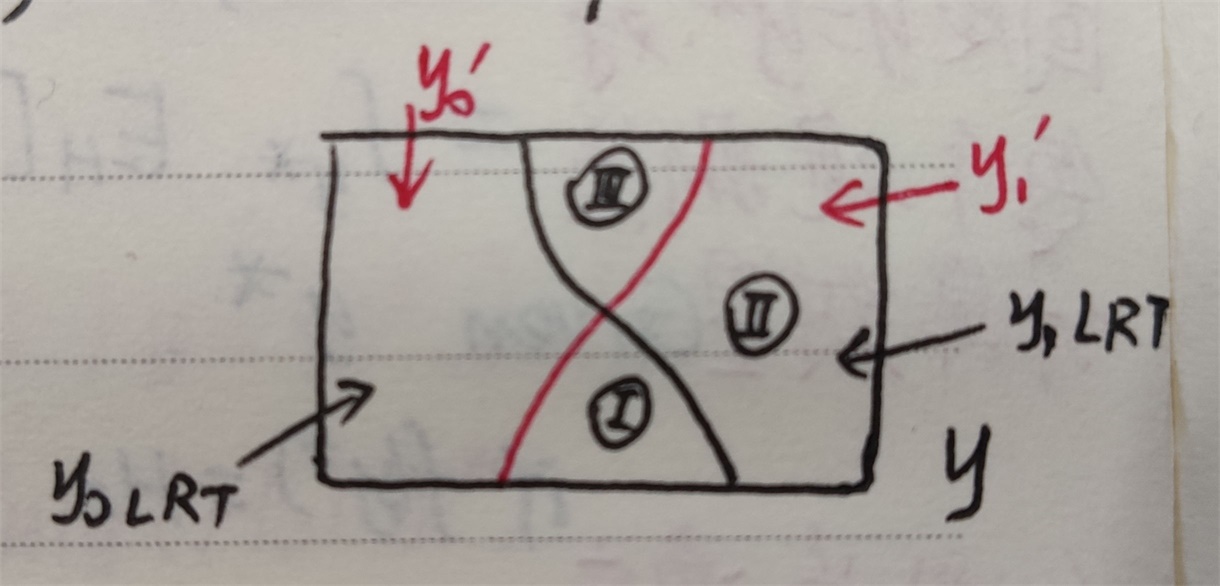 y₀′
Ⅲ
y₁′
Ⅱ
y₁ LRT
Ⅰ
y₀ LRT
y